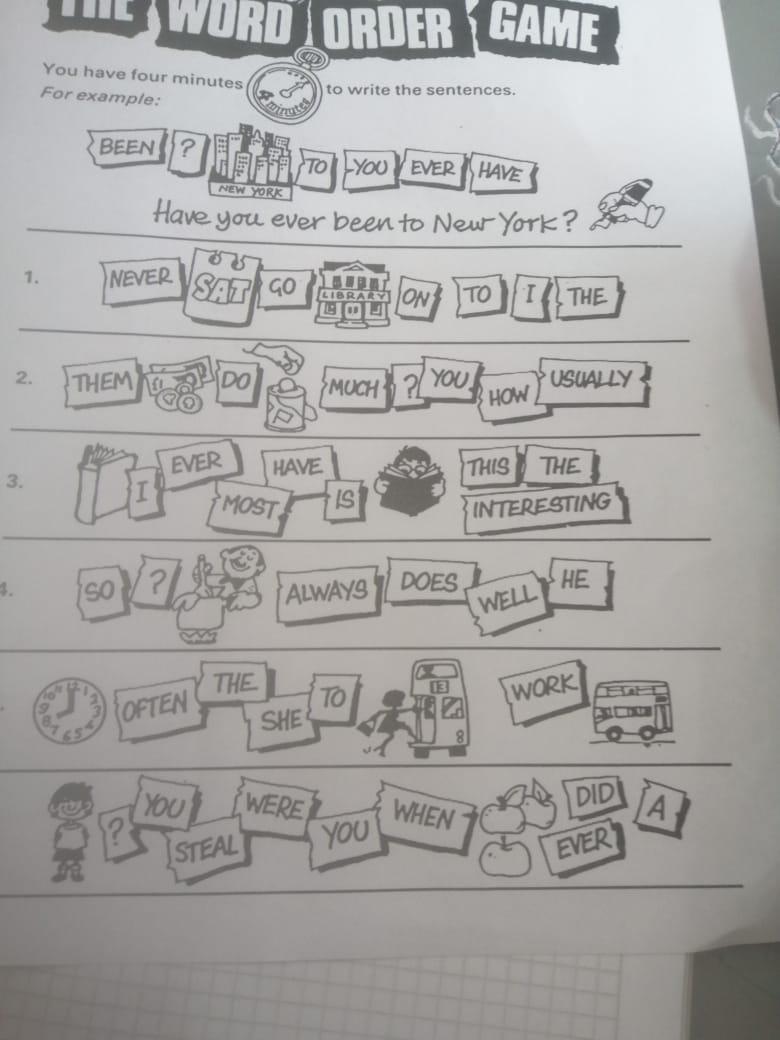 THE WORD ORDER GAME
You have four minutes 4 minutes to write the sentences.
For example:
BEEN ? NEW YORK TO YOU EVER HAVE
Have you ever been to New York?
1. NEVER SAT GO LIBRARY ON TO I THE
2. THEM DO MUCH ? YOU HOW USUALLY
3. I EVER MOST HAVE IS THIS THE INTERESTING
4. SO ? ALWAYS DOES WELL HE
OFTEN THE SHE TO 8 WORK
? YOU STEAL WERE YOU WHEN DID EVER A